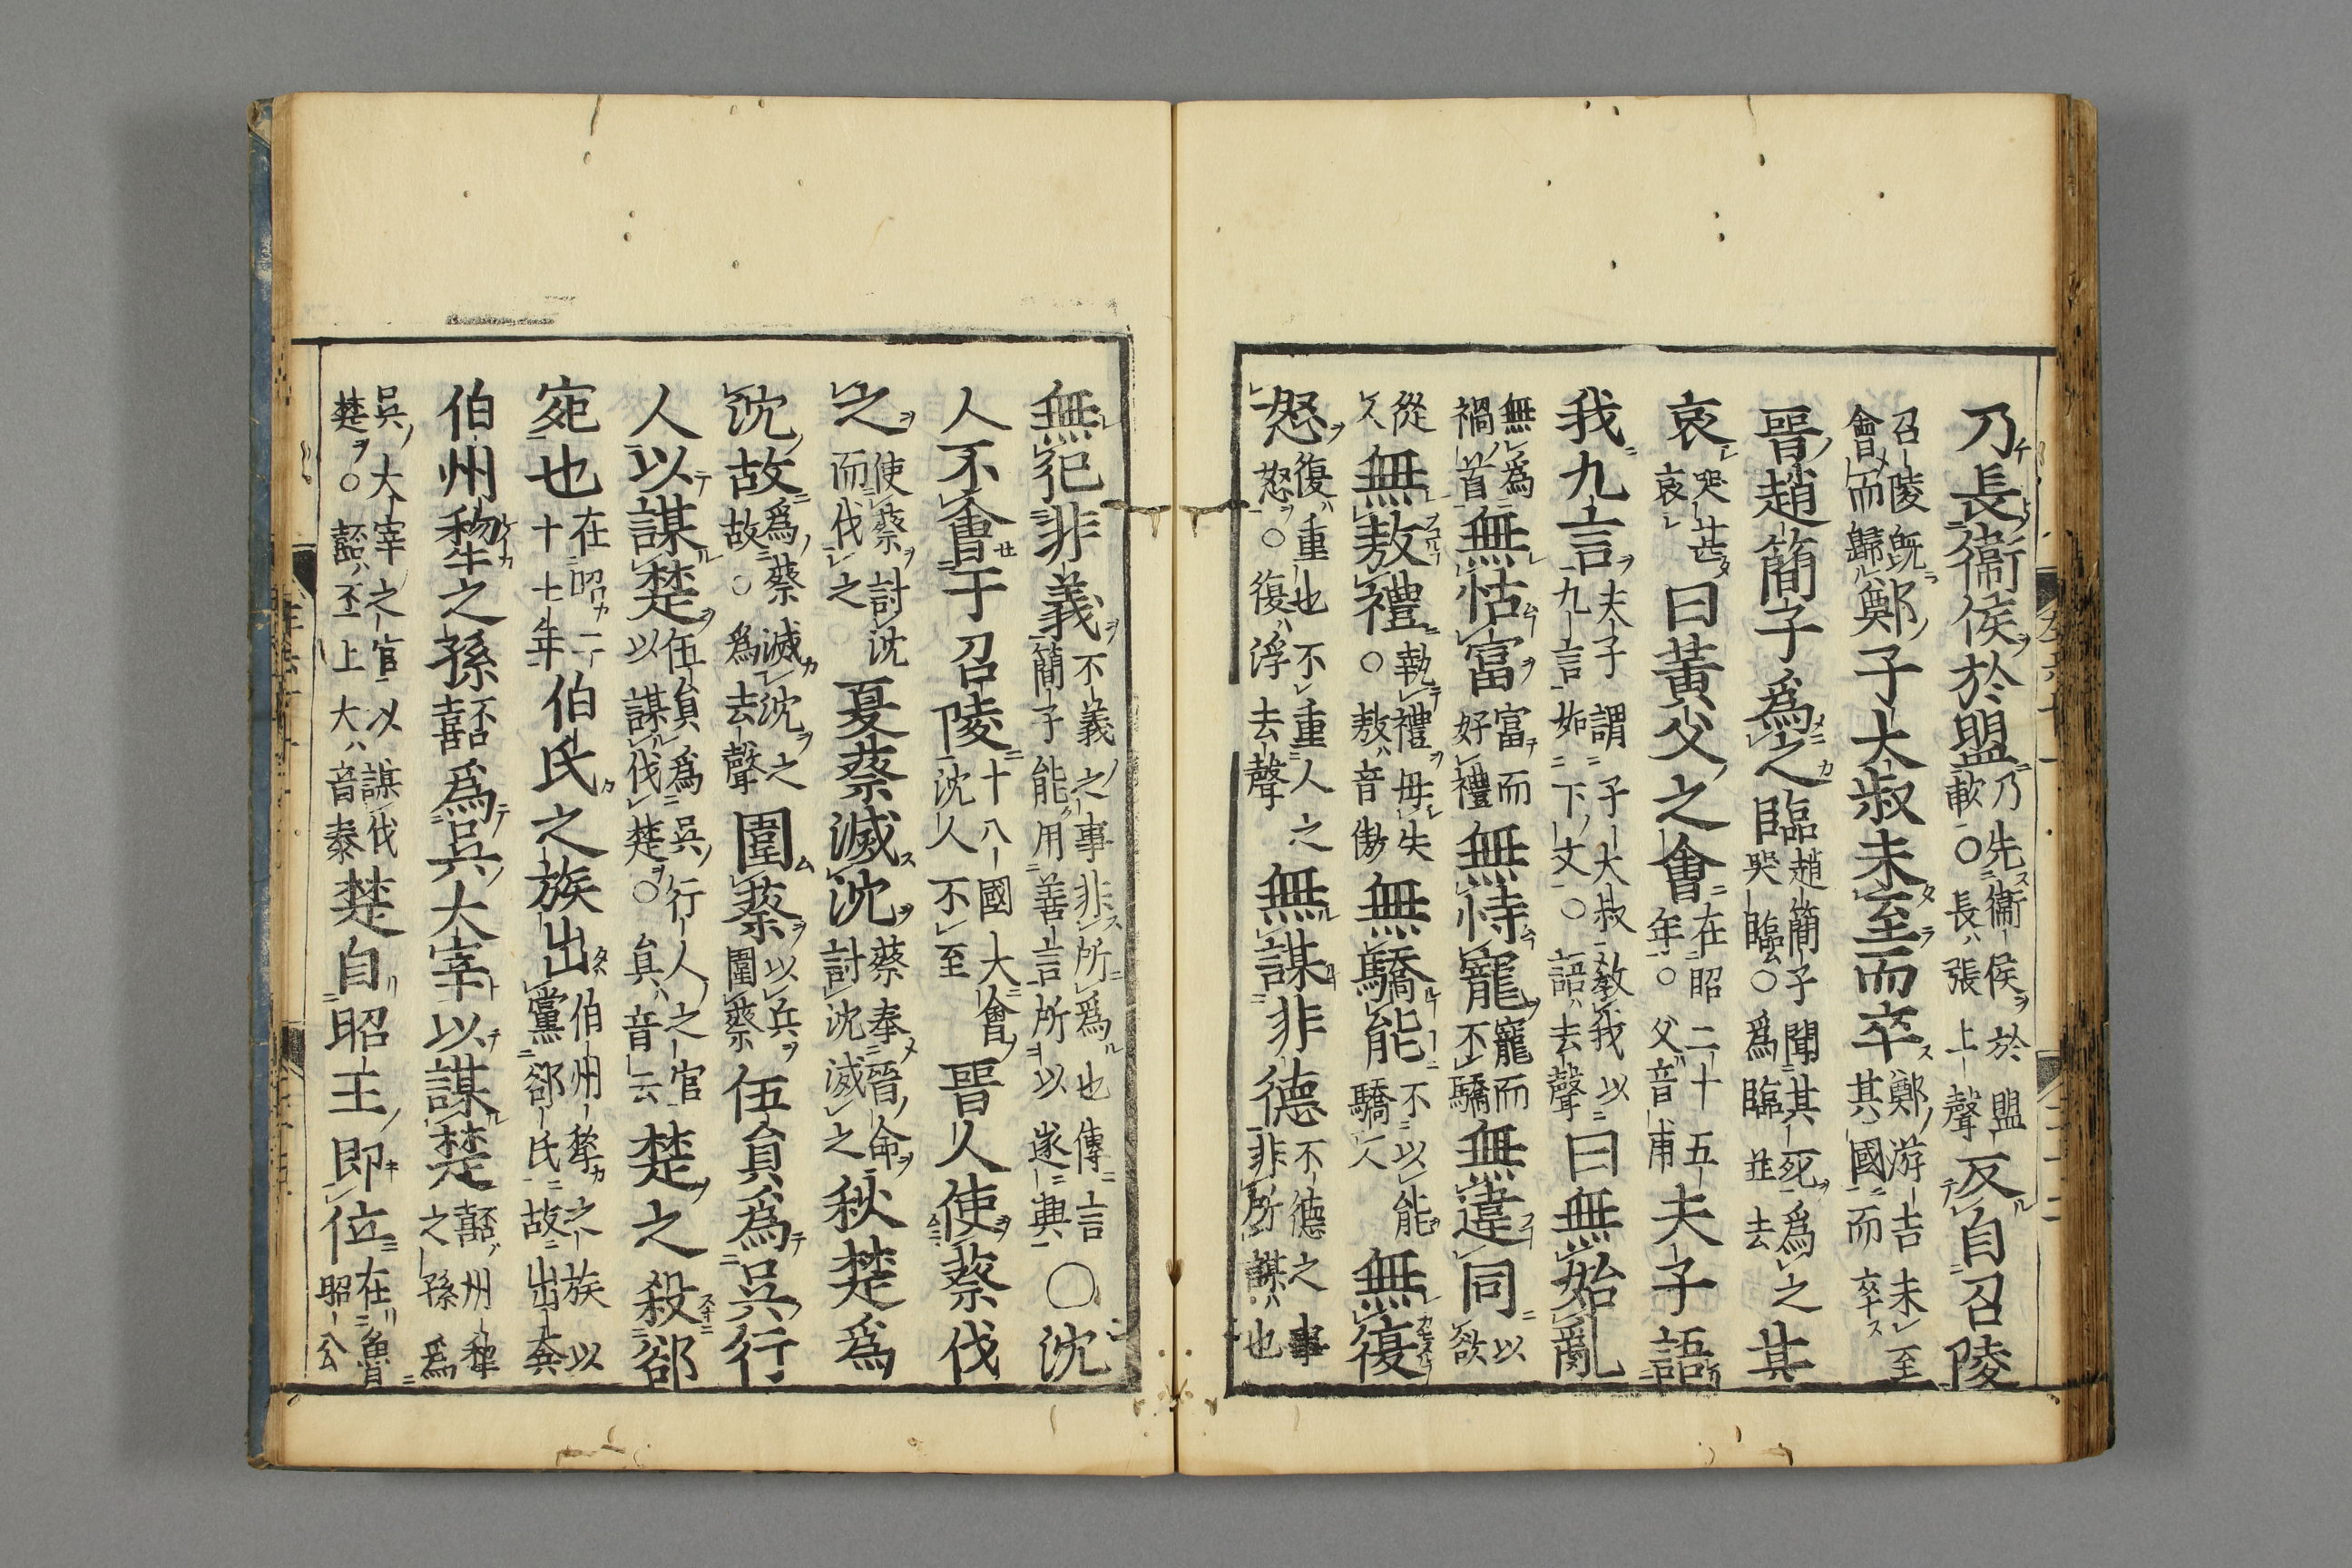 乃長衞侯於盟乃先衞侯於盟歃○長張上聲反自召陵
召陵既會而歸鄭子大叔未至而卒鄭游吉未至其國而卒
晉趙簡子爲之臨趙簡子聞其死爲之哭臨○爲臨並去甚
哀哭甚哀曰黃父之會在昭二十五年○父音甫夫子語
我九言夫子謂子大叔敎我以九言如下文○語去聲曰無始亂
無爲禍首無怙富富而好禮無恃寵寵而不驕無違同以欲
從人無敖禮執禮毋失○敖音傲無驕能不以能驕人無復
怒復重也不重人之怒○復浮去聲無謀非德不德之事非所謀也
無犯非義不義之事非所爲也傳言簡子能用善言所以遂興○沈
人不會于召陵十八國大會沈人不至晉人使蔡伐
之使蔡討沈而伐之夏蔡滅沈蔡奉晉命討沈滅之秋楚爲
沈故爲蔡滅沈之故○爲去聲圍蔡以兵圍蔡伍員爲吳行
人以謀楚伍員爲吳行人之官以謀伐楚○員音云楚之殺郤
宛也在昭二十七年伯氏之族出伯州犂之族以黨郤氏故出奔
伯州犂之孫嚭爲吳大宰以謀楚嚭州犂之孫爲
吳大宰之官以謀伐楚○嚭丕上大音泰楚自昭王即位在魯昭公